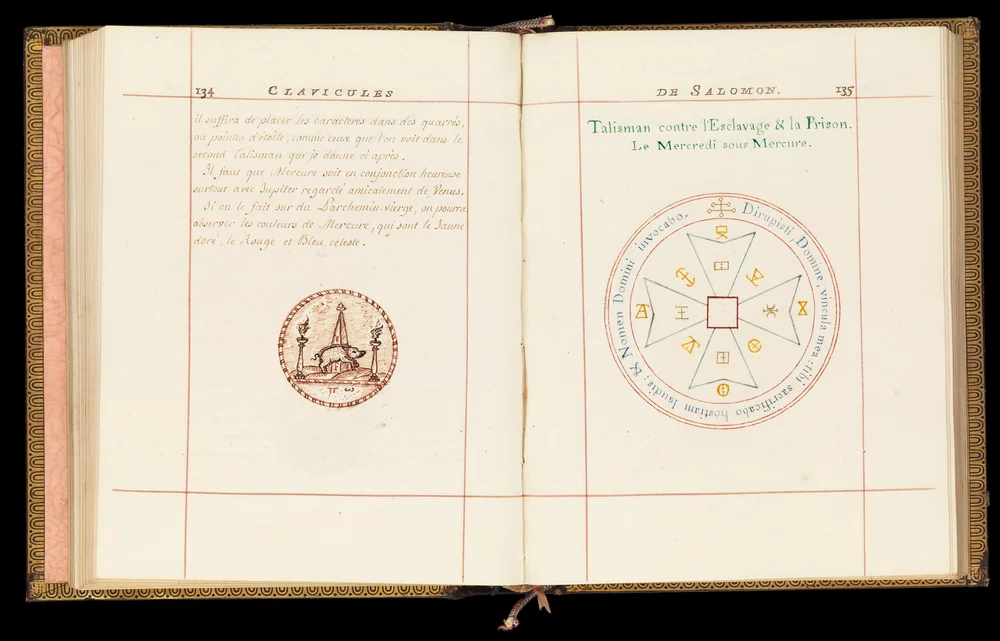 134 CLAVICULES
il suffira de placer les caractères dans des quarrés,
ou pointes d'étoile, comme ceux que l'on voit dans le
second Talisman que je donne ci après.
Il faut que Mercure soit en conjonction heureuse
surtout avec Jupiter regardé amicalement de Venus.
Si on le fait sur du Parchemin vierge, on pourra
observer les couleurs de Mercure, qui sont le Jaune
doré, le Rouge et Bleu celeste.
DE SALOMON. 135
Talisman contre l'Esclavage & la Prison.
Le Mercredi sous Mercure.
Dirupisti, Domine, vincula mea: tibi sacrificabo hostiam laudis; & Nomen Domini invocabo.